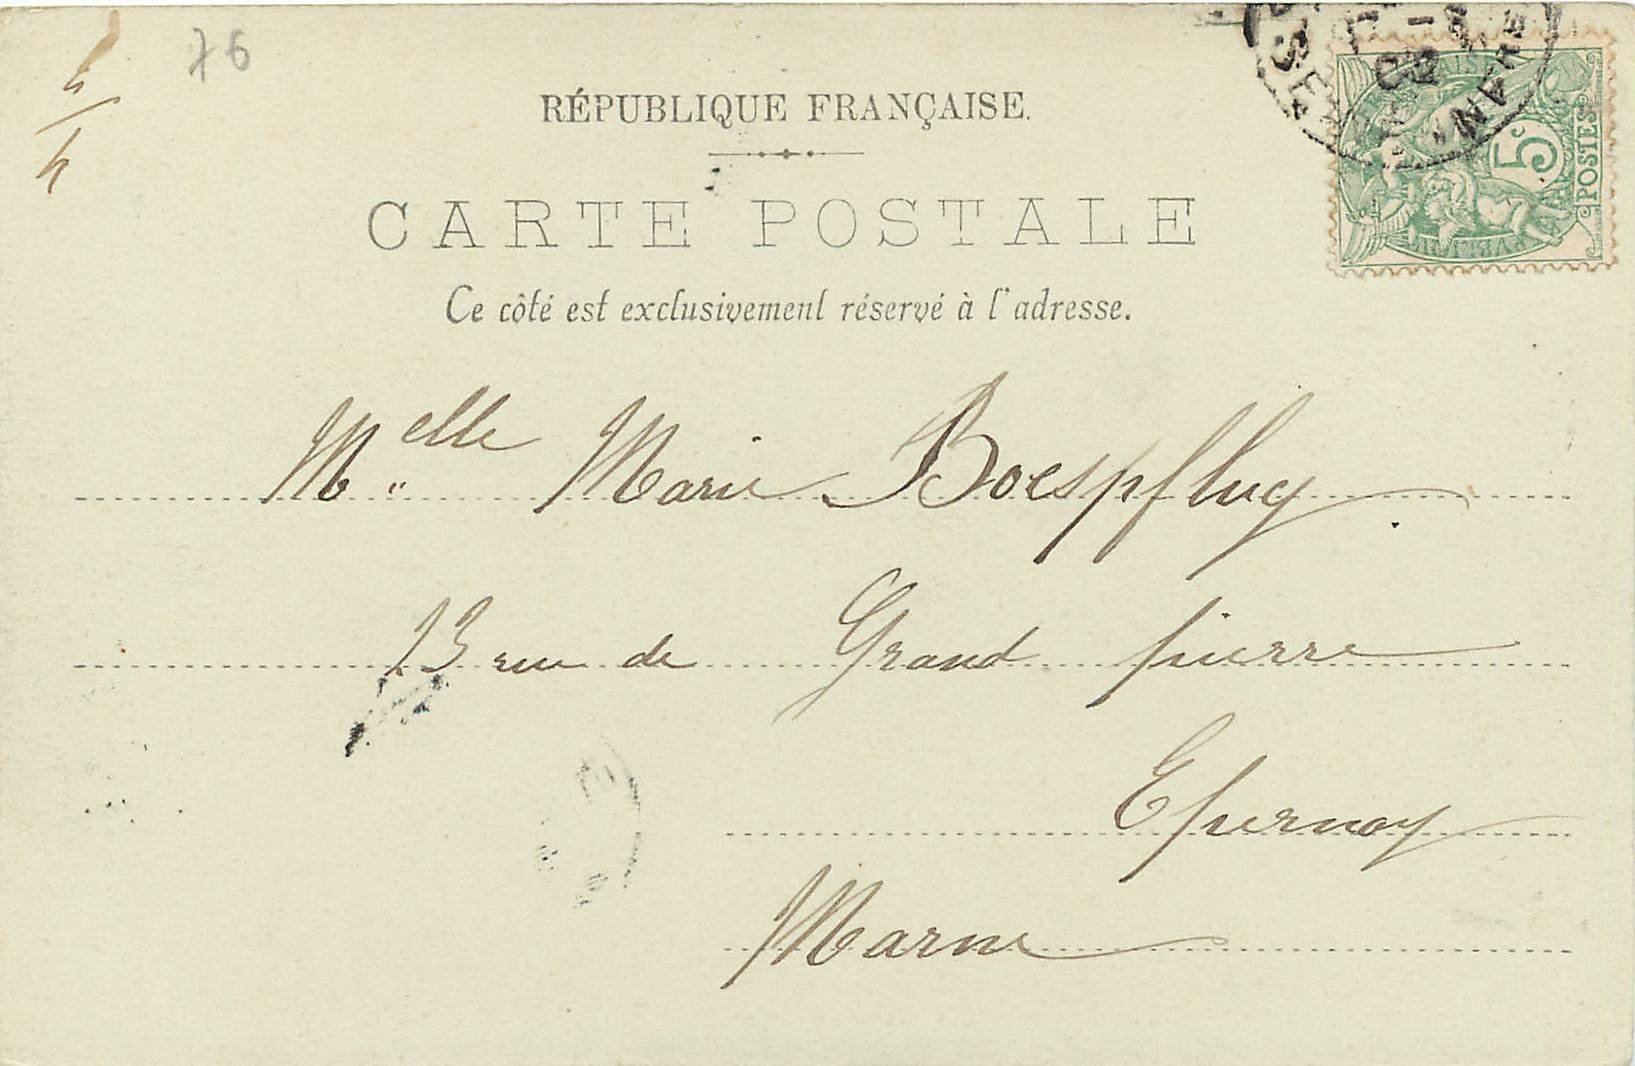 76
RÉPUBLIQUE FRANÇAISE.
CARTE POSTALE
Ce côté est exclusivement réservé à l'adresse.
5c
POSTES
Melle Marie Boespflug
13 rue de Grand pierre
Epernay
Marne